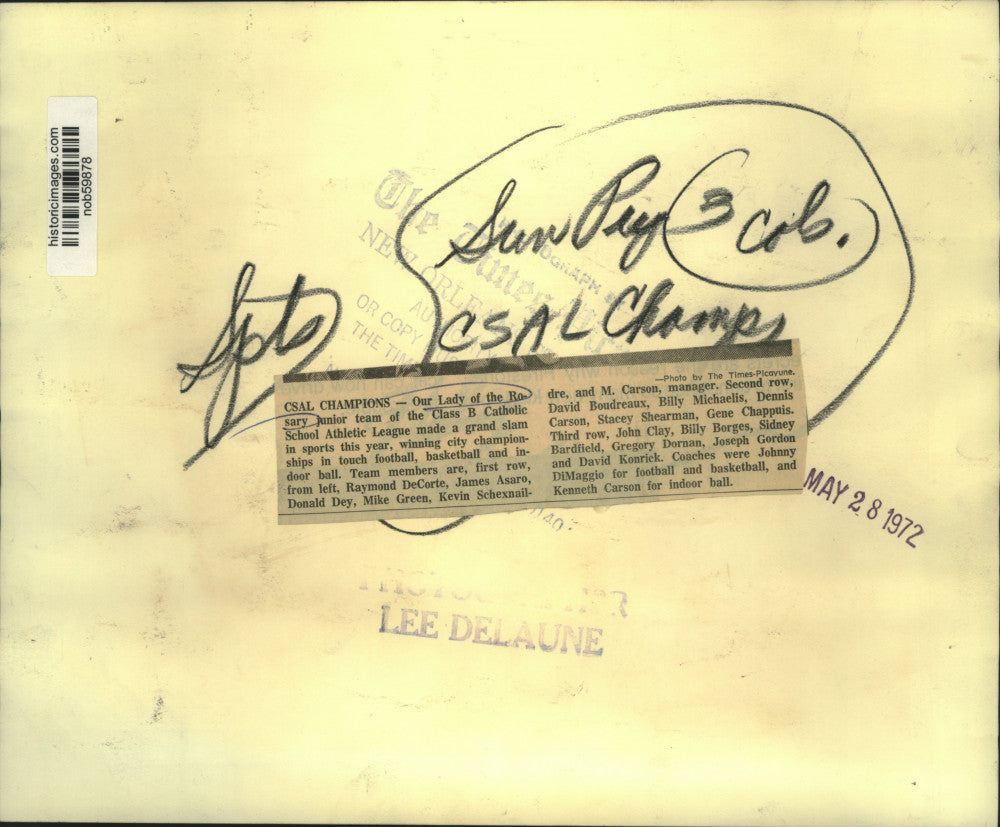 historicimages.com
nob59878
The Times
NEW ORLE
OR COPY
THE TIM
Sun Peg 3 Col.
CSAL Champs
Spts
CSAL CHAMPIONS — Our Lady of the Ro-
sary junior team of the Class B Catholic
School Athletic League made a grand slam
in sports this year, winning city champion-
ships in touch football, basketball and in-
door ball. Team members are, first row,
from left, Raymond DeCorte, James Asaro,
Donald Dey, Mike Green, Kevin Schexnail-
—Photo by The Times-Picayune.
dre, and M. Carson, manager. Second row,
David Boudreaux, Billy Michaelis, Dennis
Carson, Stacey Shearman, Gene Chappuis.
Third row, John Clay, Billy Borges, Sidney
Bardfield, Gregory Dornan, Joseph Gordon
and David Konrick. Coaches were Johnny
DiMaggio for football and basketball, and
Kenneth Carson for indoor ball.
MAY 28 1972
LEE DELAUNE